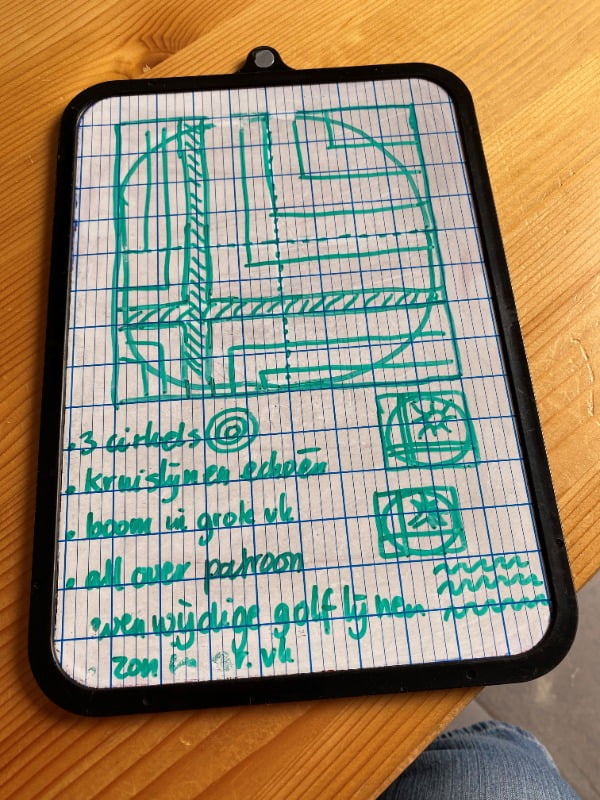 . 3 cirkels
. kruislijnen echoën
. boom in grote vk
. all over patroon
evenwijdige golflijnen
zon vk